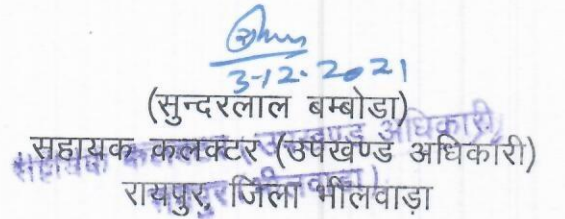 3-12-2021
(सुन्दरलाल बम्बोडा)
सहायक कलक्टर (उपखण्ड अधिकारी)
रायपुर, जिला भीलवाड़ा